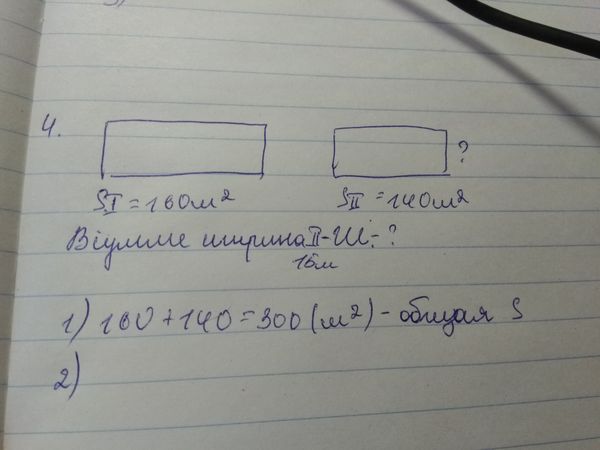 4.
?
SI = 160м² SII = 140м²
ширина II - Ш. - ?
15м
1) 160 + 140 = 300 (м²) - общая S
2)